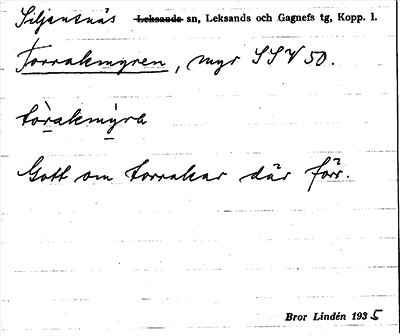 Siljansnäs Leksands sn, Leksands och Gagnefs tg, Kopp. l.
Torrakmyren, myr SSV 50.
tòrakmýrɐ
Gott om torrakar där förr.
Bror Lindén 1935